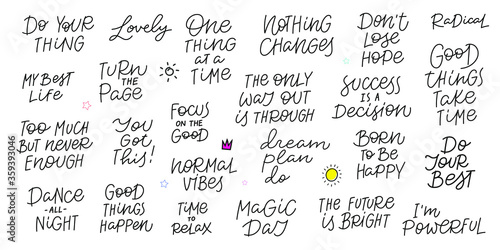 Do Your
Thing
Lovely
One
Thing
at a
Time
Nothing
Changes
Don't
Lose
Hope
Radical
My Best
Life
Turn
the
Page
The Only
Way Out
is Through
Success
is a
Decision
Good
Things
Take
Time
Too Much
But Never
Enough
You
Got
This!
Focus
on the
Good
Normal
Vibes
dream
plan
do
Born
to Be
Happy
Do
Your
Best
Dance
-all-
Night
Good
Things
Happen
Time
to
Relax
Magic
Day
The Future
is Bright
I'm
Powerful
359393046
Adobe Stock